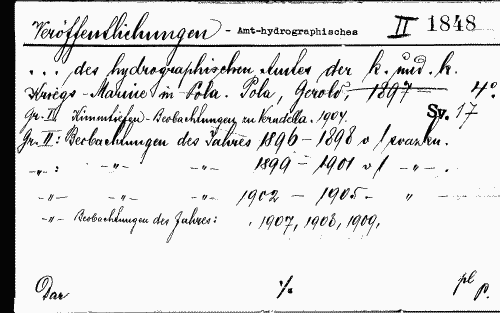 Veröffentlichungen - Amt-hydrographisches II 1848
... des hydrographischen Amtes der k. und k.
Kriegs-Marine in Pola. Pola, Gerold, 1897 4°.
Gr. II Kimmtiefen-Beobachtungen zu Verudella. 1904. Sv. 17
Gr. II: Beobachtungen des Jahres 1896 - 1898 v /
-„- : -„- -„- 1899 - 1901 v / -„- .
-„- -„- -„- 1902 - 1905. „ -
-„- Beobachtungen des Jahres: 1907, 1908, 1909,
Dar